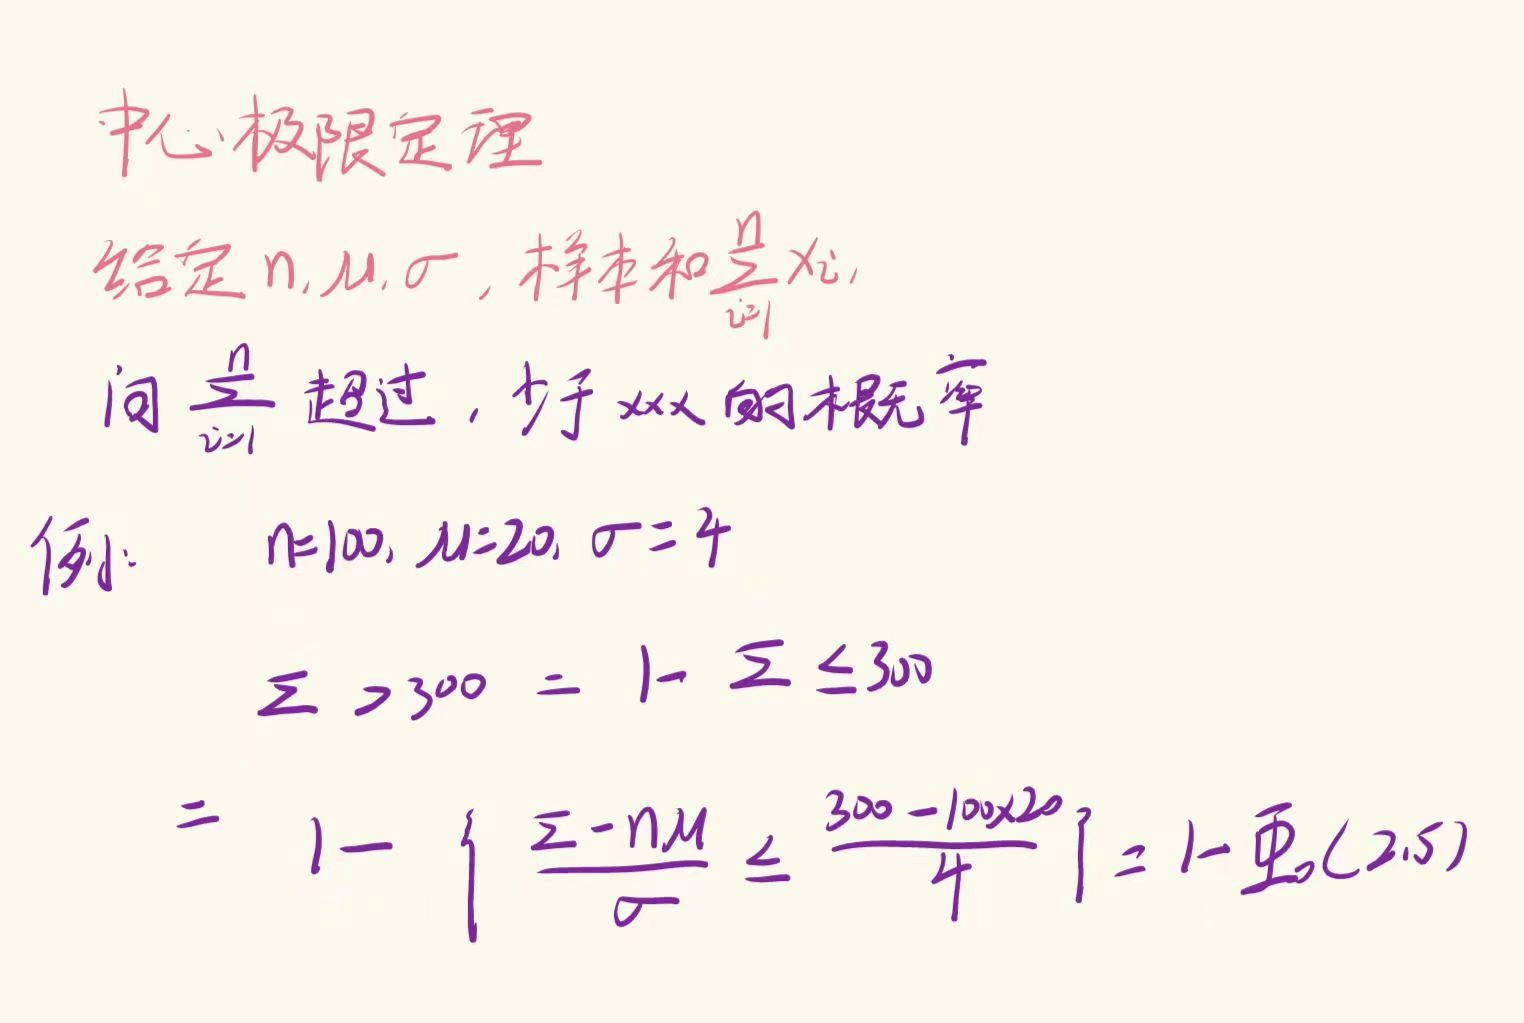 中心极限定理
给定 n, μ, σ, 样本和 \sum_{i=1}^{n} x_i,
问 \sum_{i=1}^{n} 超过, 少于 xxx 的概率
例: n=100, μ=20, σ=4
Σ >300 = 1- Σ ≤300
= 1- { \frac{Σ-nμ}{σ} ≤ \frac{300-100×20}{4} } = 1- Φ₀(2.5)